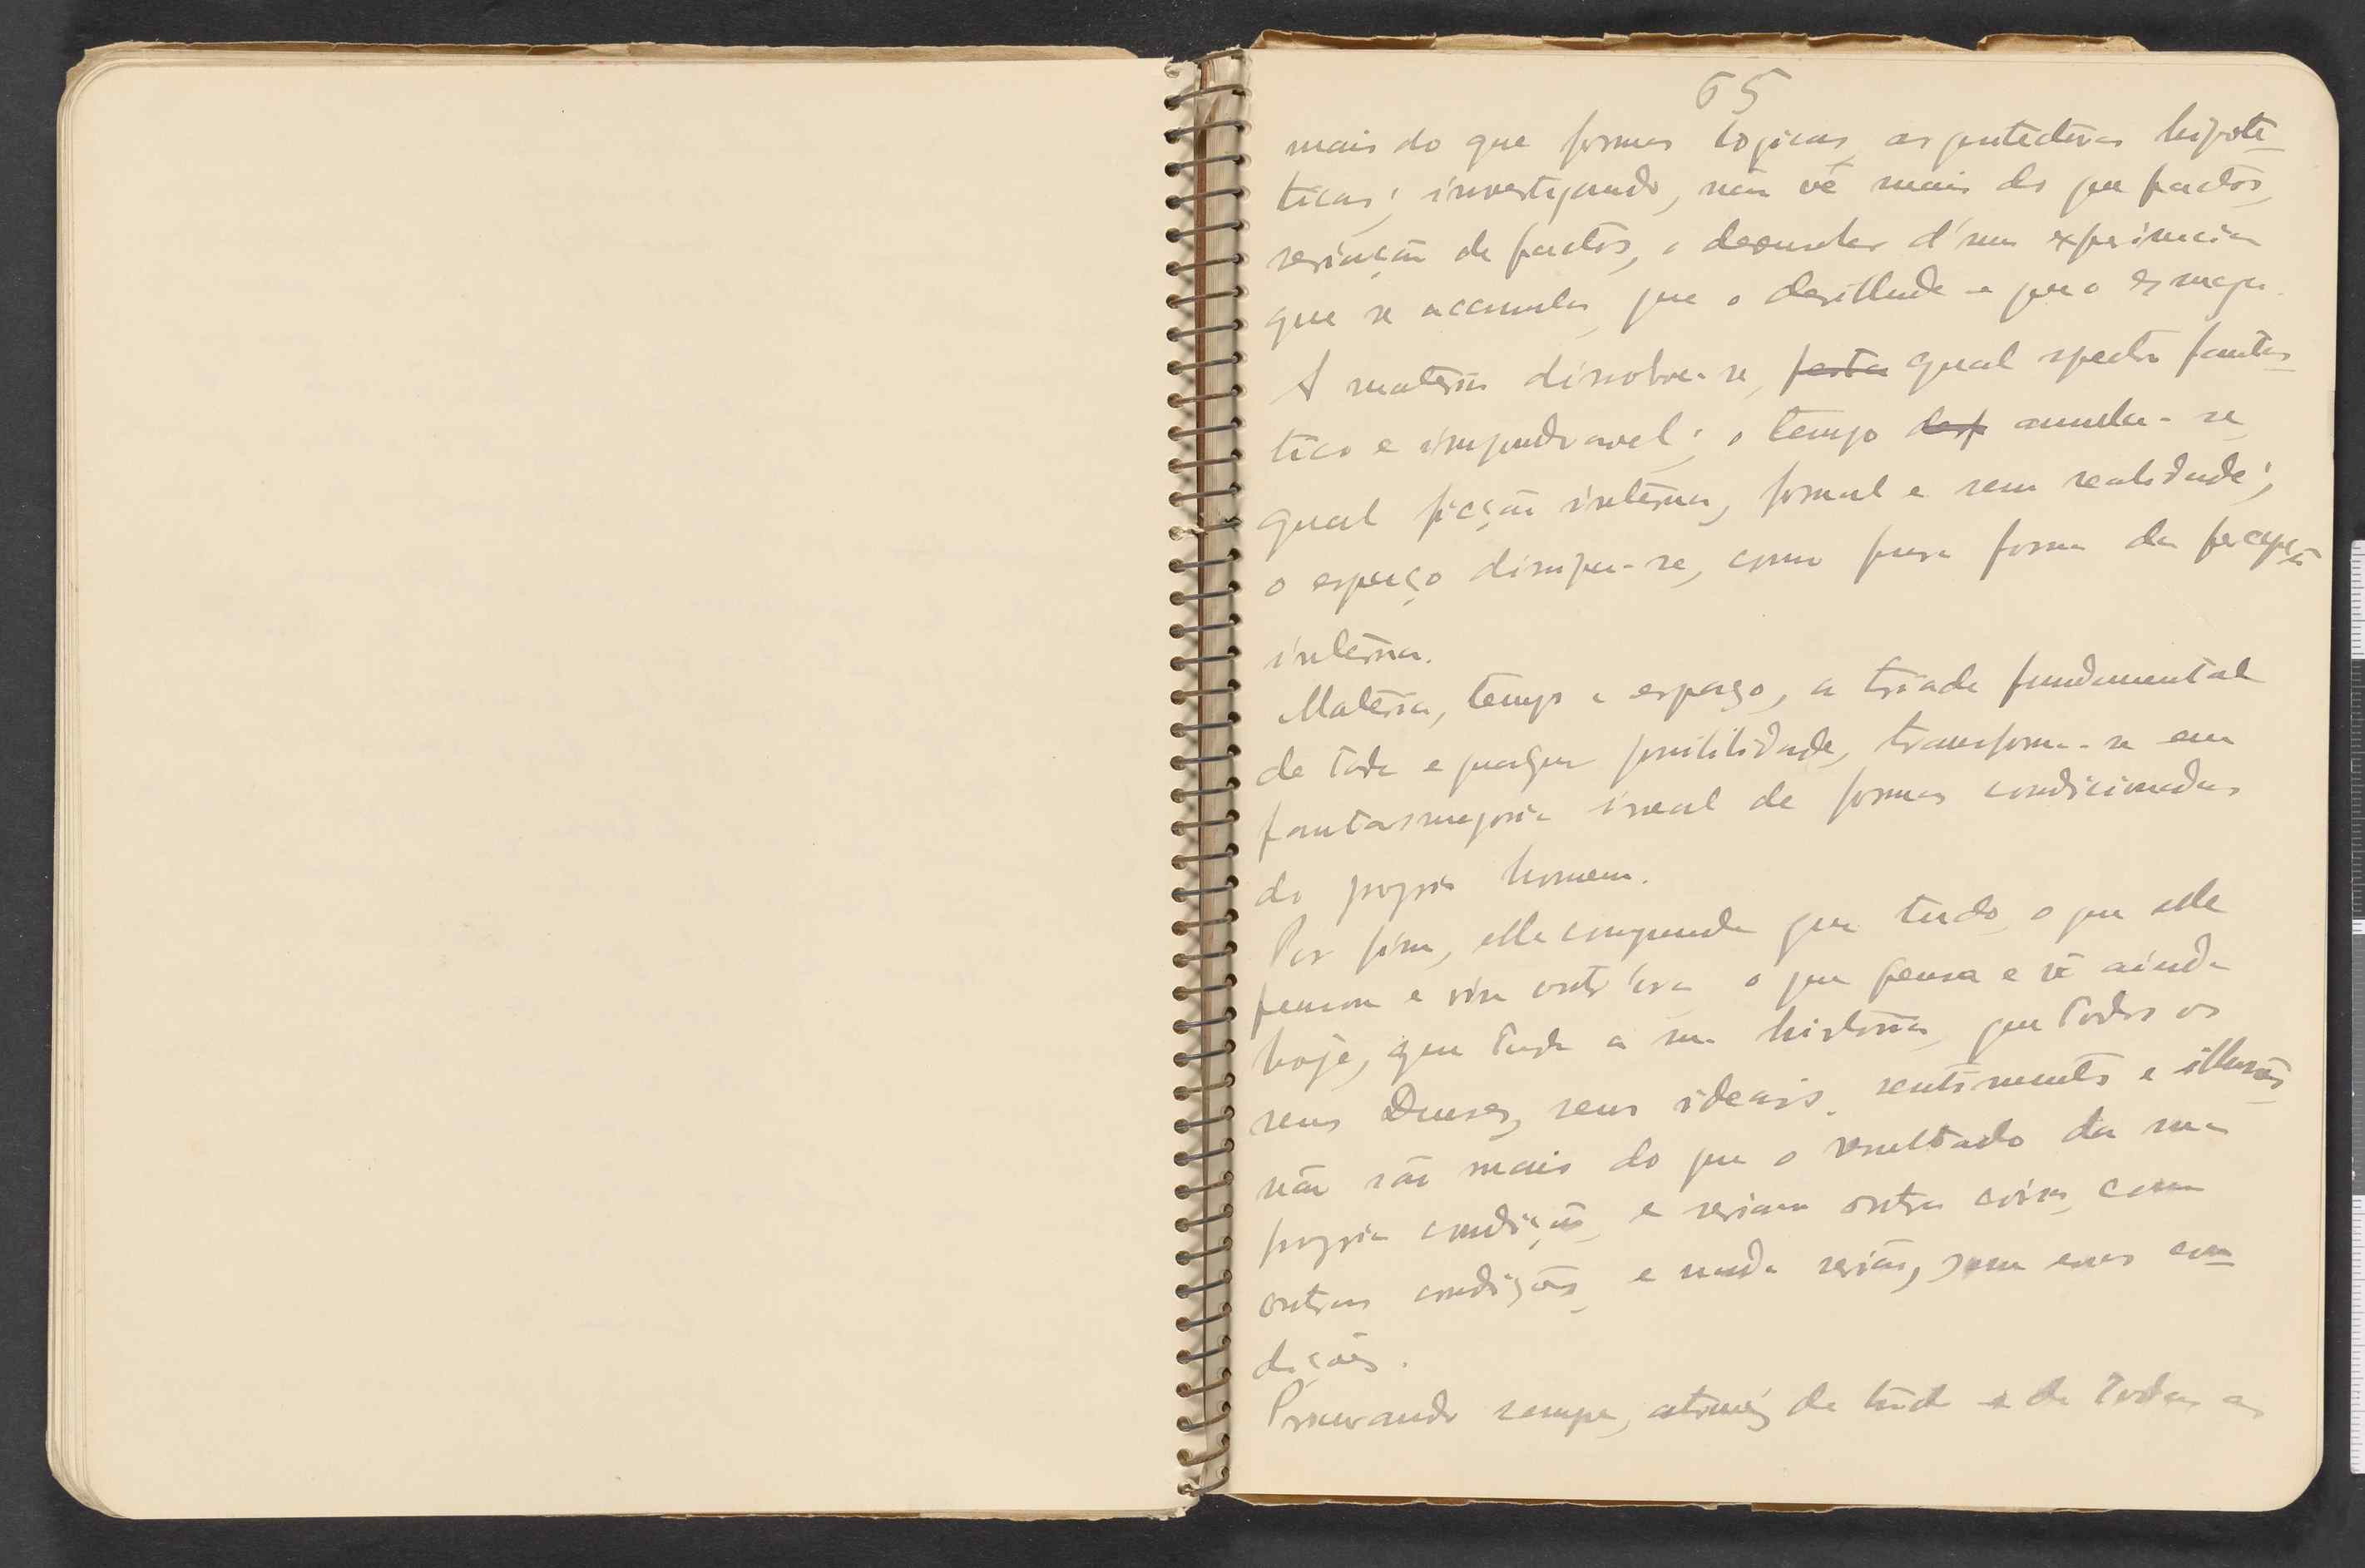 65
mais do que formas logicas, arquitecturas hipote-
ticas; investigando, não vê mais do que factos,
seriação de factos, o desenrolar d'uma experiencia
que se accumula, que o desillude e que o esmaga.
A materia dissolve-se, qual espectro fantas-
tico e imponderavel; o tempo annula-se
qual ficção interna, formal e sem realidade;
o espaço dissipa-se, como pura forma da percepção
interna.
Materia, tempo e espaço, a triade fundamental
de toda e qualquer possibilidade, transforma-se em
fantasmagoria irreal de formas condicionadas
do proprio homem.
Por fim, elle comprende que tudo o que elle
pensou e viu outr'ora o que pensa e vê ainda
hoje, que toda a sua historia, que todos os
seus Deuses, seus ideais, sentimentos e illusões
não são mais do que o resultado da sua
propria condição, e seriam outra coisa, com
outras condições, e nada serião, sem essas con-
dições.
Procurando sempre, através de tudo e de todas as